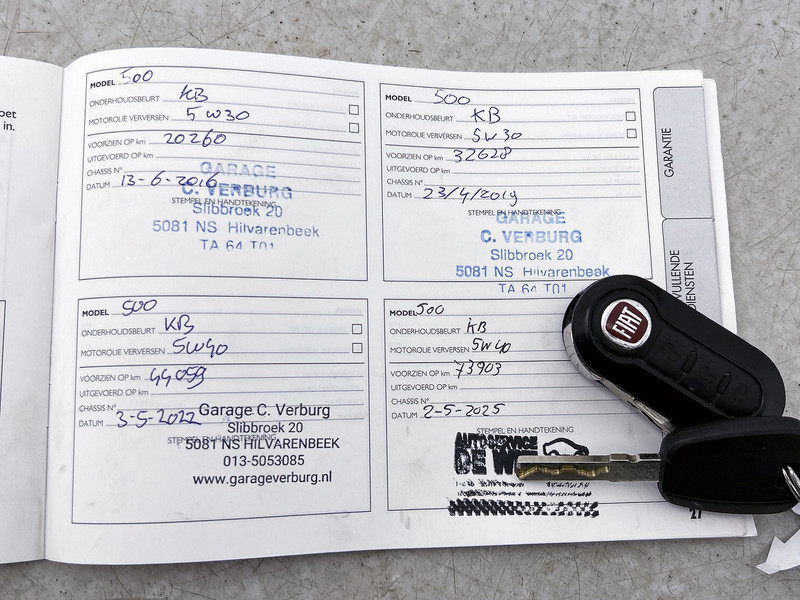 oet
in.
MODEL 500
ONDERHOUDSBEURT KB
MOTOROLIE VERVERSEN 5W30
VOORZIEN OP km 20260
UITGEVOERD OP km
CHASSIS N°
DATUM 13-6-2016
STEMPEL EN HANDTEKENING
GARAGE
C. VERBURG
Slibbroek 20
5081 NS Hilvarenbeek
TA 64 T01
MODEL 500
ONDERHOUDSBEURT KB
MOTOROLIE VERVERSEN 5W30
VOORZIEN OP km 32628
UITGEVOERD OP km
CHASSIS N°
DATUM 23/4/2019
STEMPEL EN HANDTEKENING
GARAGE
C. VERBURG
Slibbroek 20
5081 NS Hilvarenbeek
TA 64 T01
MODEL 500
ONDERHOUDSBEURT KB
MOTOROLIE VERVERSEN 5W40
VOORZIEN OP km 44059
UITGEVOERD OP km
CHASSIS N°
DATUM 3-5-2022
STEMPEL EN HANDTEKENING
Garage C. Verburg
Slibbroek 20
5081 NS HILVARENBEEK
013-5053085
www.garageverburg.nl
MODEL 500
ONDERHOUDSBEURT KB
MOTOROLIE VERVERSEN 5W40
VOORZIEN OP km 73903
UITGEVOERD OP km
CHASSIS N°
DATUM 2-5-2025
STEMPEL EN HANDTEKENING
AUTOSERVICE
DE WE
27
GARANTIE
VULLENDE
DIENSTEN
FIAT